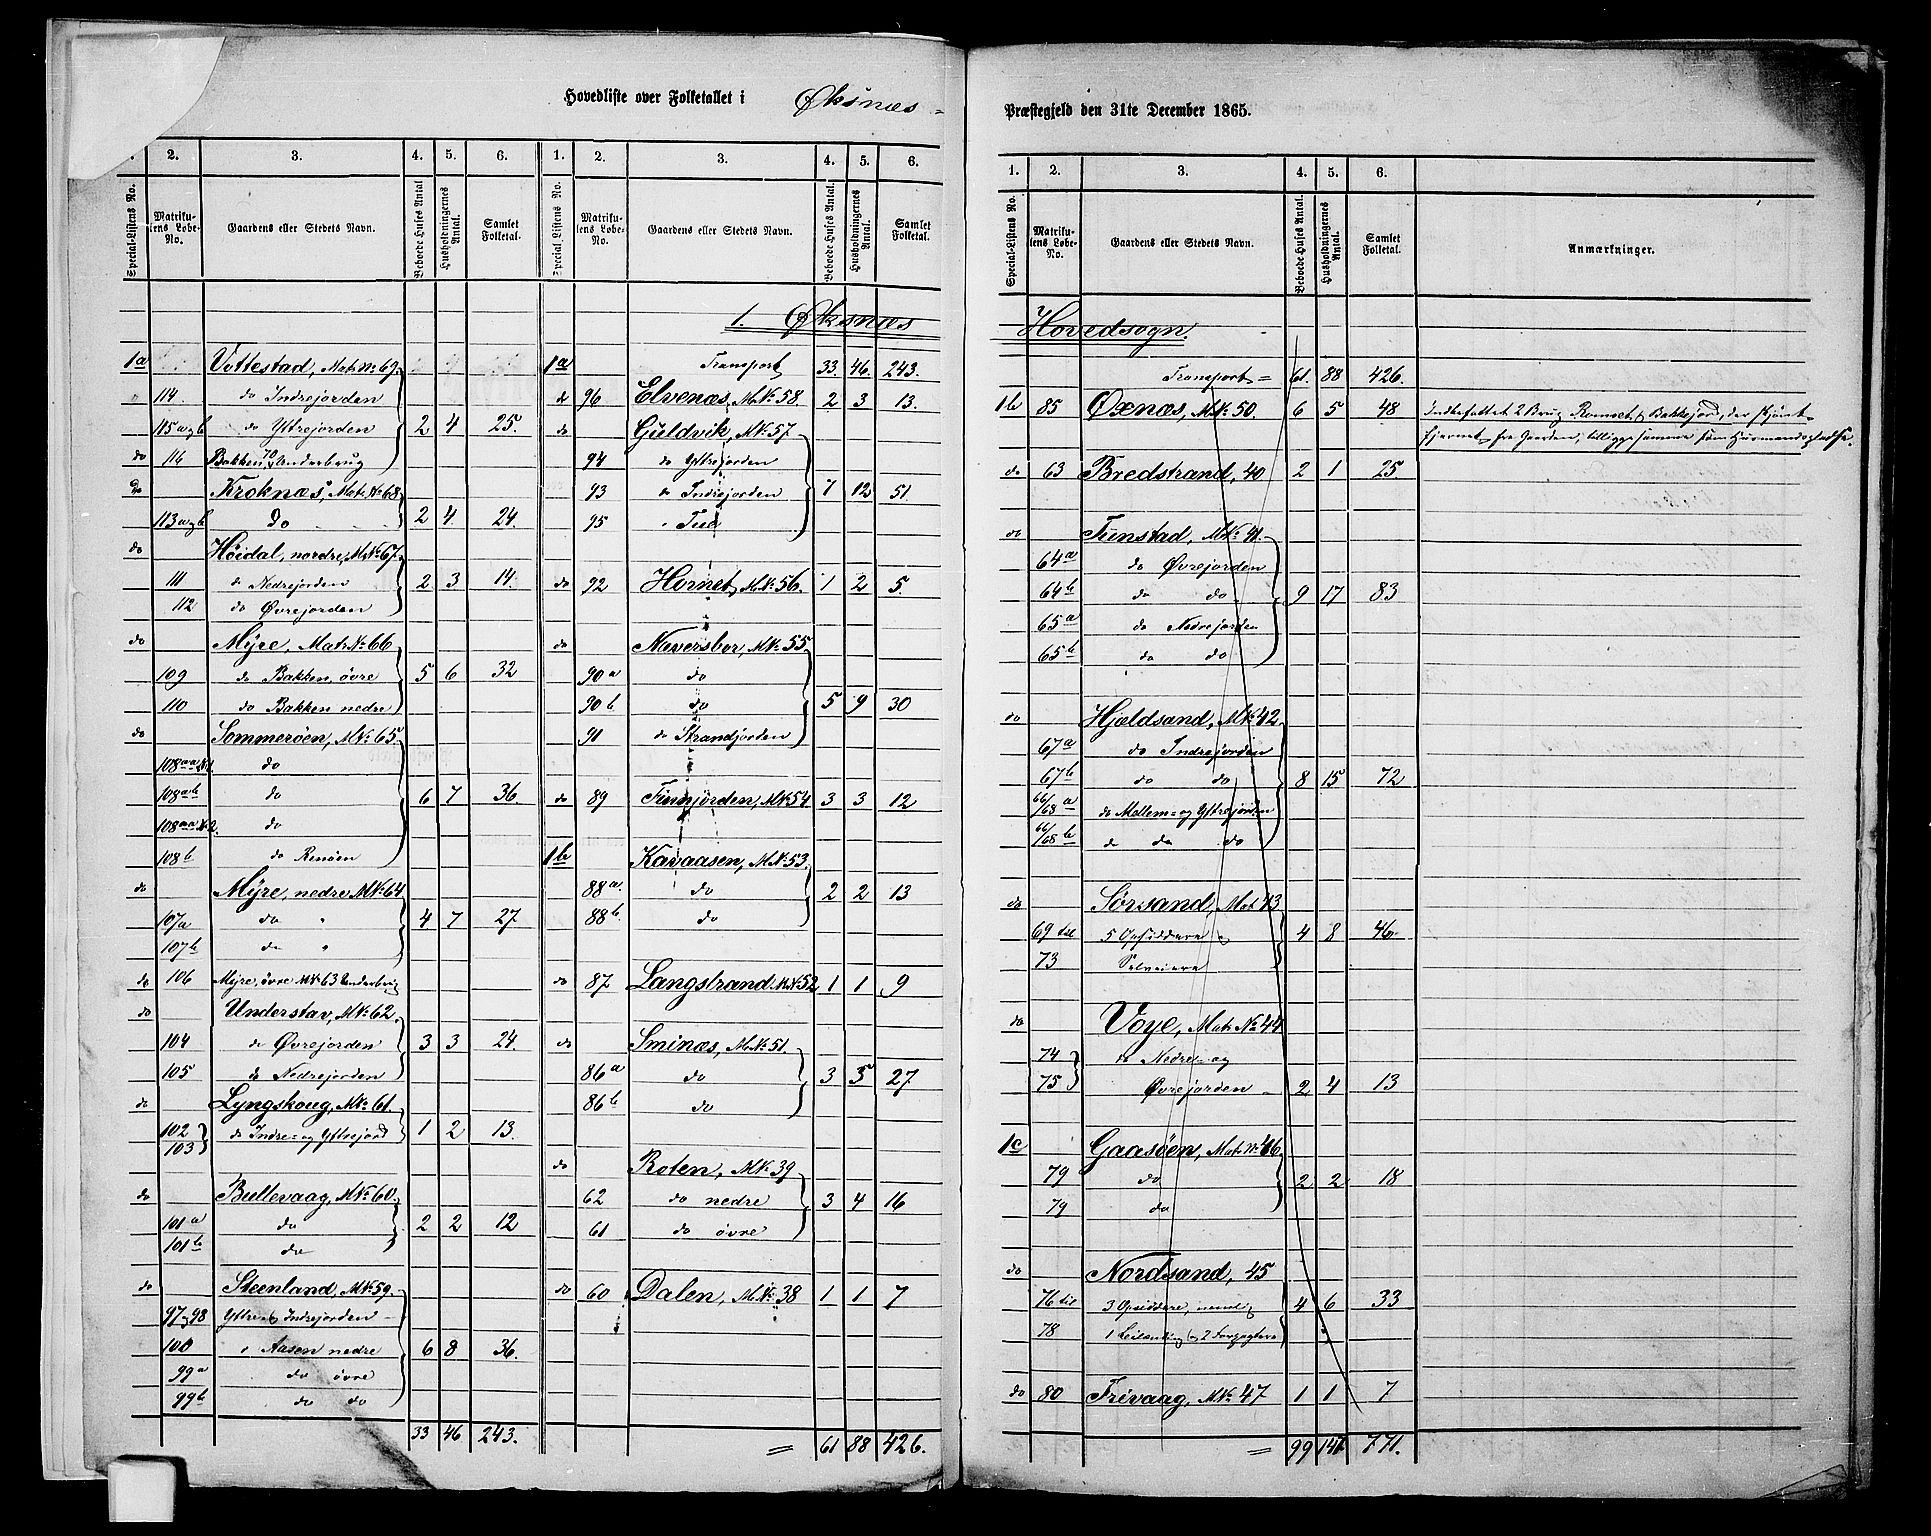 Hovedliste over Folketallet i Øksnæs
1. 2. 3. 4. 5. 6. 1. 2. 3. 4. 5. 6.
Special-Listens No. Matrikulens Løbe-No. Gaardens eller Stedets Navn. Beboede Huses Antal Husholdningernes Antal. Samlet Folketal. Special-Listens No. Matrikulens Løbe-No. Gaardens eller Stedets Navn. Beboede Huses Antal. Husholdningernes Antal. Samlet Folketal.
1a Vottestad, Matr. No 69.
114. do Indrejorden
115 a og b do Yttrejorden 2 4 25.
do 116 Bakken 70 Underbrug
do Kroknæs, Matr. No 68
113 a og b Do 2 4 24.
do Höidal, nordre, M.No 67.
111 do Nedrejorden 2 3 14.
112 do Øvrejorden
do Myre, Matr. No 66
109 do Bakken, övre 5 6 32
110 do Bakken nedre
do Sommeröen, M.No 65.
108aa do
108ab do 6 7 36.
108aa No 2. do
108b do Renöen
do Myre, nedre M.No 64
107a do " 4 7 27
107b do "
do 106 Myre, övre M.No 63 Underbrug
do Understav, M.No 62.
104 do Øvrejorden 3 3 24.
105 do Nedrejorden
do Lyngskoug, M.No 61.
102 103 do Indre- og Yttrejord 1 2 13.
do Bullevaag, M.No 60.
101a do 2 2 12
101b do
do Steenland, M.No 59.
97 og 98 Yttre og Indrejorden
100 " Aasen nedre 6 8 36.
99a do övre
99b do do
33 46 243.
1. Øksnæs
1a Transport 33. 46. 243.
do 96 Elvenæs, M.No 58. 2 3 13.
do Guldvik, M.No 57.
94 do Yttrejorden
93 do Indrejorden 7 12 51.
95 " Tua
do 92 Hornet, M.No 56. 1 2 5.
do Næversbor, M.No 55
90a do
90b do 5 9 30
91 do Strandjorden
do 89 Finnjorden, M.No 54. 3 3 12
1b Kavaasen, M.No 53.
88a. do 2 2 13
88b. do
do 87 Langstrand M.No 52 1 1 9
do Sminæs, M.No 51.
86a do 3 5 27
86b do
do Roten, M.No 39
62 do nedre 3 4 16
61 do övre
do 60 Dalen, M.No 38 1 1 7
= 61 88 426.
Præstegjeld den 31te December 1865.
1. 2. 3. 4. 5. 6.
Special-Listens No. Matrikulens Løbe-No. Gaardens eller Stedets Navn. Beboede Huses Antal. Husholdningernes Antal. Samlet Folketal. Anmærkninger.
Hovedsogn.
Transport = 61. 88 426.
1b 85 Øxnæs, M.No 50. 6 5 48 Indbefattet 2 Brug Romset, & Bakkejord, der skjönt
fjernet fra Gaarden, tilligge samme som Husmandspladse.
do 63 Bredstrand, 40 2 1 25.
do Tunstad, M.No 41.
64a do Øvrejorden
64b do do 9 17 83
65a do Nedrejorden
65b do do
do Hjeldsand, M.No 42
67a do Indrejorden
67b do do 8 15 72
66/68a do Mellem- og Yttrejorden
66/68b do do do
do Sörsand, Matr. 43
69 til 5 Opsiddere og 4 8 46.
73 Selveiere
do Voye, Matr. No 44
74 do Nedre- og
75 Øvrejorden 2 4 13
1c Gaasöen, Matr. No 46
79 do 2 2 18
79 do
do Nordsand, 45
76 til 3 Opsiddere, nemlig 4 6 33
78 1 Leilending og 2 Forpagtere
do 80 Frivaag, M.No 47 1 1 7
= 99 147 771.